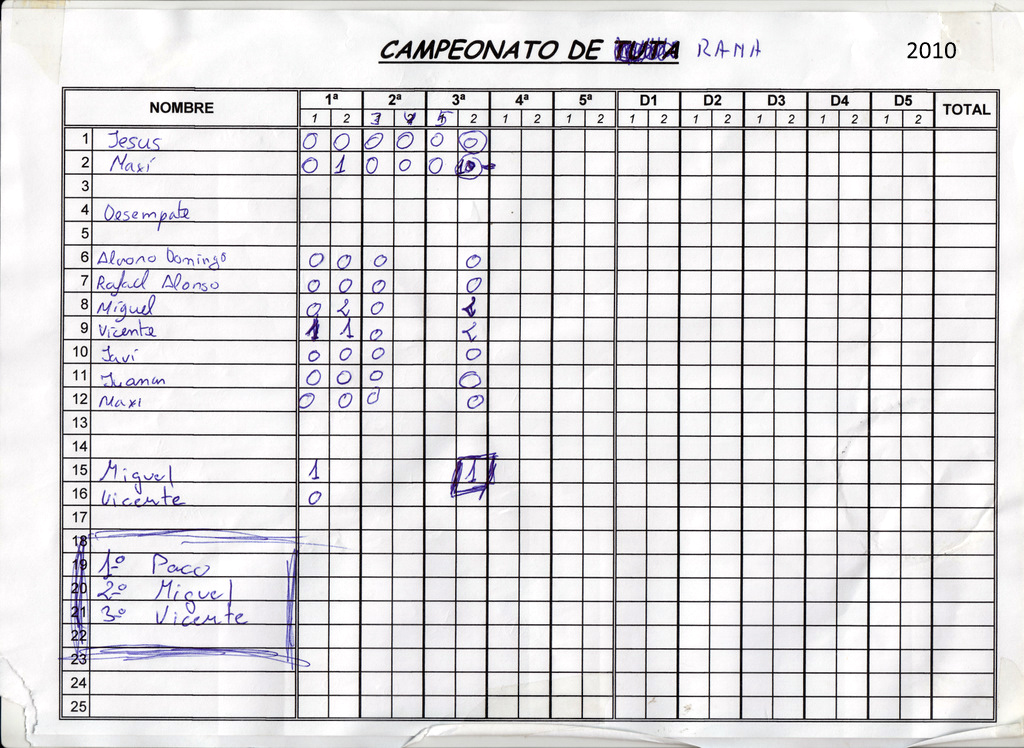 CAMPEONATO DE TUTA RANA 2010
NOMBRE 1ª 2ª 3ª 4ª 5ª D1 D2 D3 D4 D5 TOTAL
1 2 3 4 5 2 1 2 1 2 1 2 1 2 1 2 1 2 1 2
1 Jesus 0 0 0 0 0 0
2 Maxi 0 1 0 0 0
3
4 Desempate
5
6 Alvaro Domingo 0 0 0 0
7 Rafael Alonso 0 0 0 0
8 Miguel 0 2 0 2
9 Vicente 1 1 0 2
10 Javi 0 0 0 0
11 Juanan 0 0 0 0
12 Maxi 0 0 0 0
13
14
15 Miguel 1 1
16 Vicente 0
17
18
19 1º Paco
20 2º Miguel
21 3º Vicente
22
23
24
25